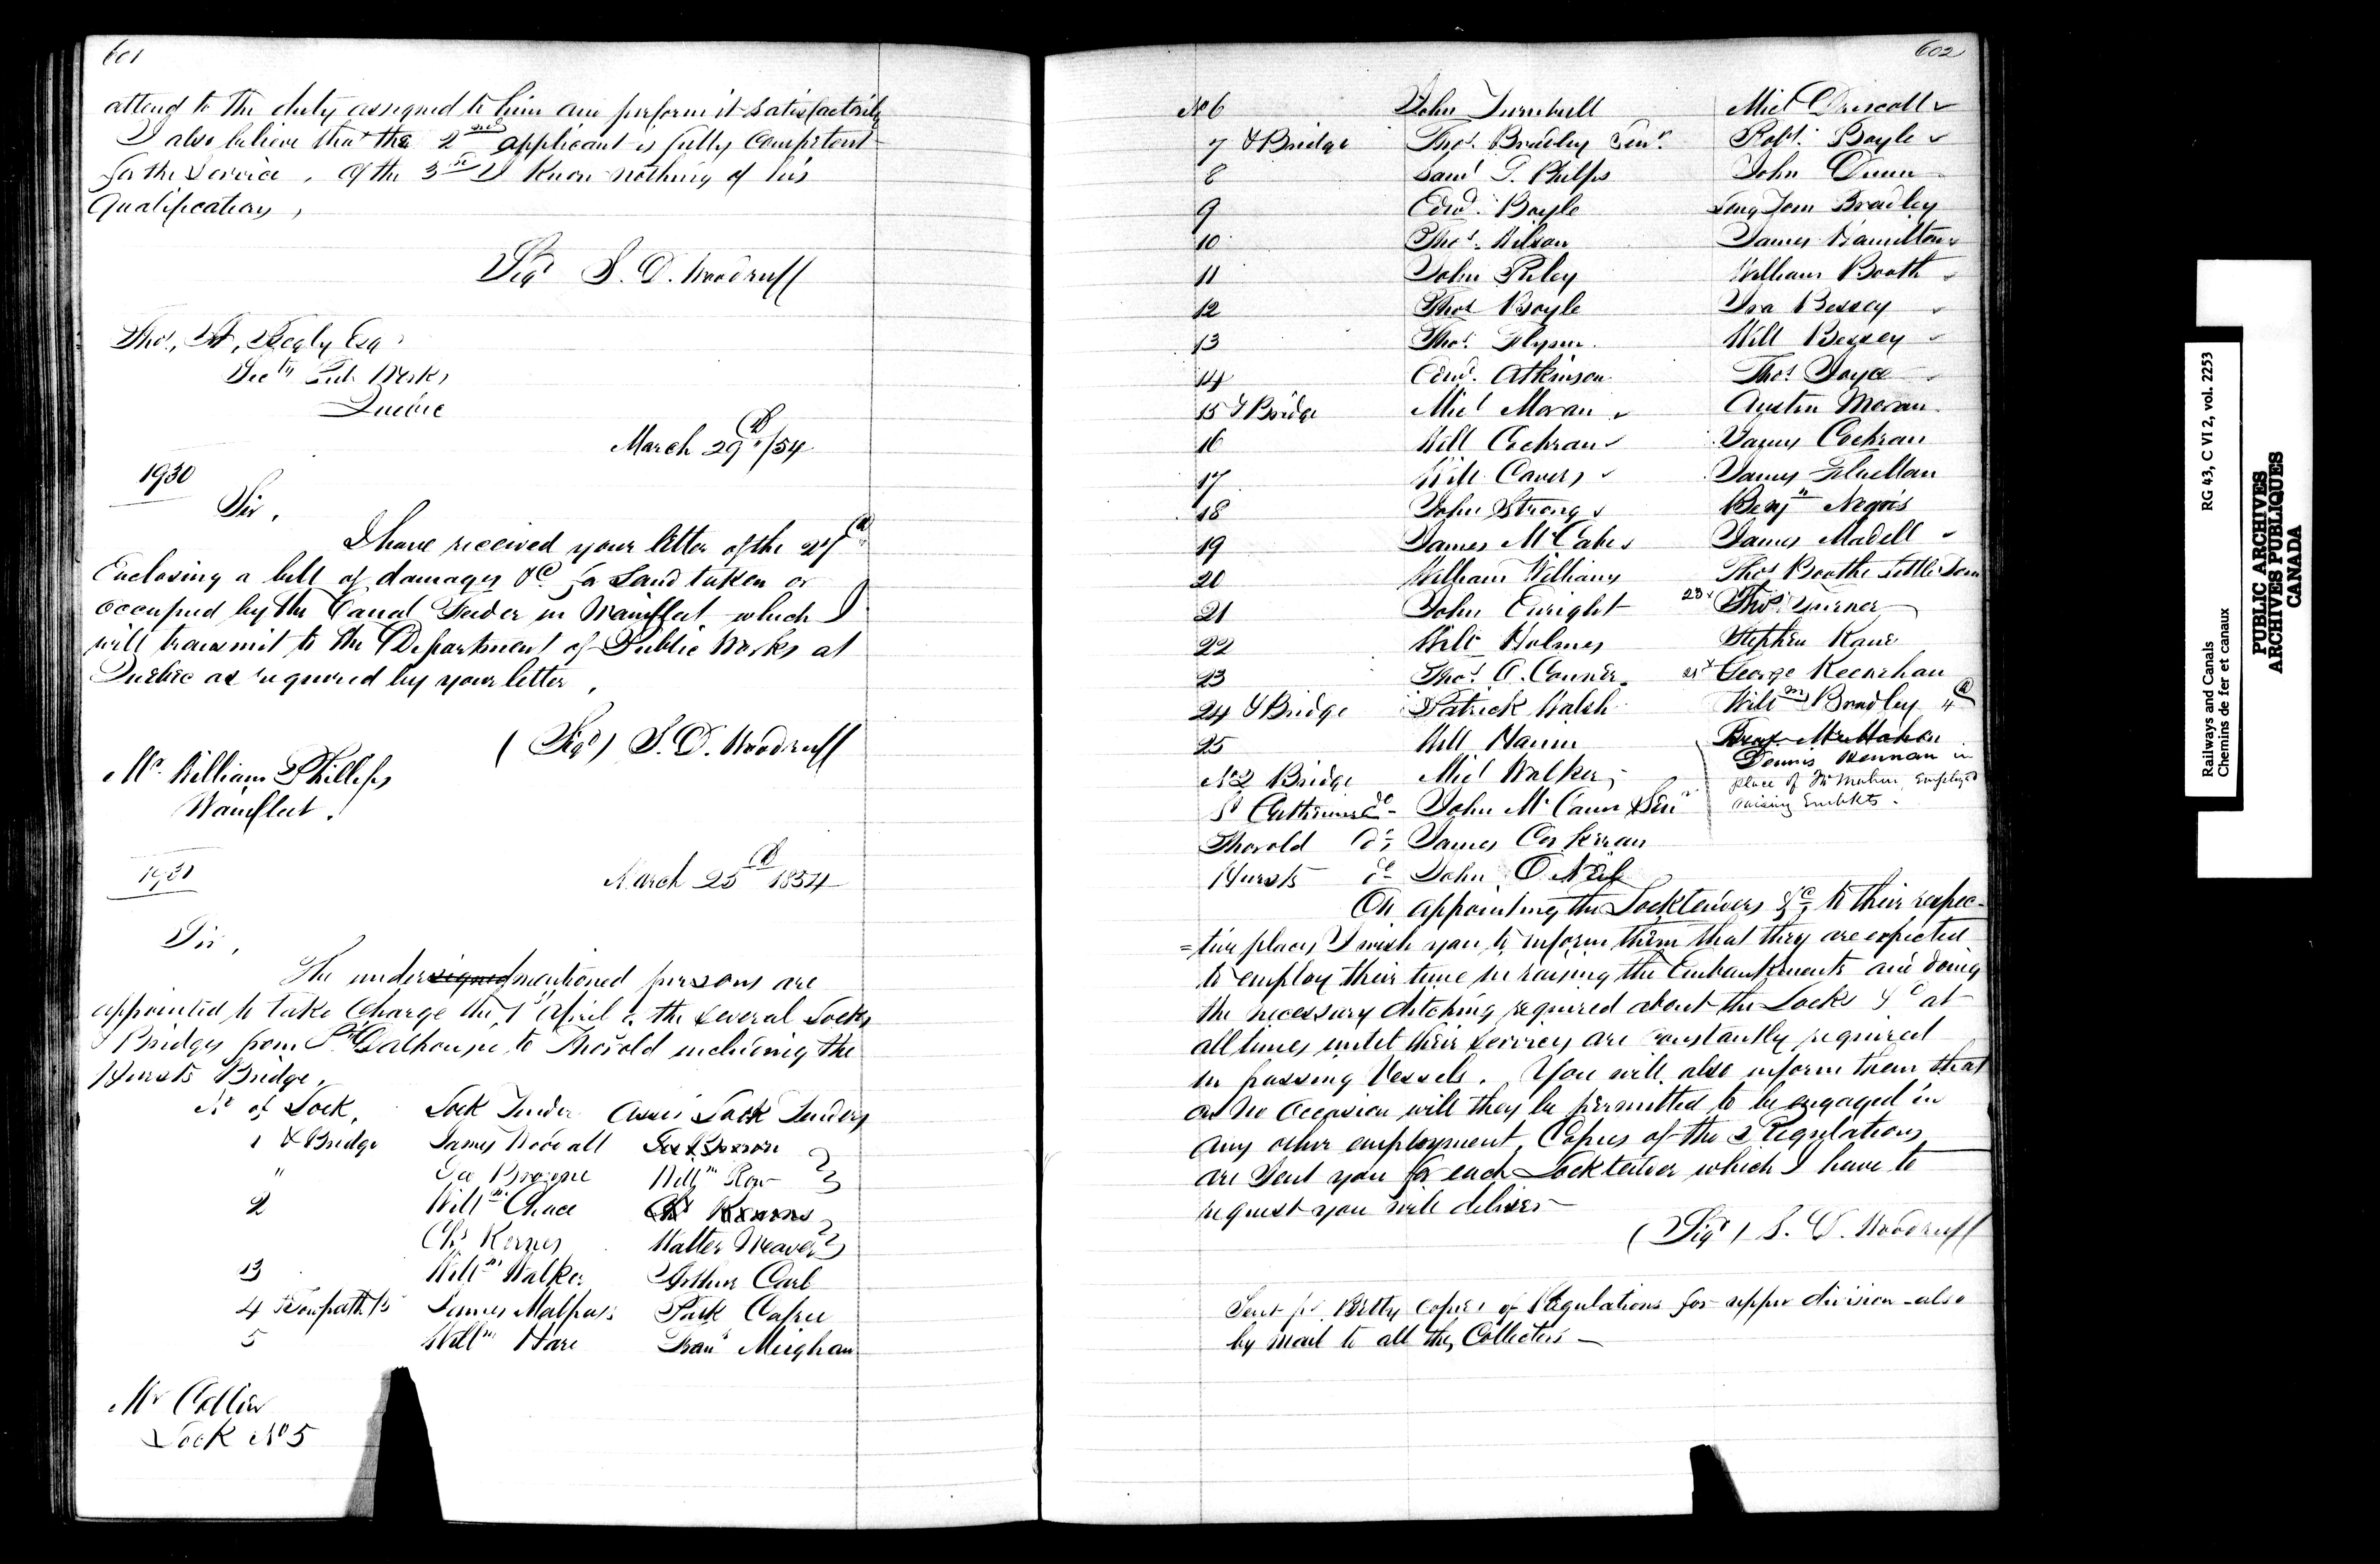 601
attend to the duty assigned to him and perform it satisfactorily
I also believe that the 2nd applicant is fully competent
for the Service. Of the 3rd I know nothing of his
qualifications,
Sigd S. D. Woodruff
Thos. A. Begly Esq
Secty Pub Works
Quebec
March 29th /54
1930
Sir,
I have received your letter of the 27th
Enclosing a bill of damages &c for Land taken or
occupied by the Canal Feeder in Wainfleet which I
will transmit to the Department of Public Works at
Quebec as required by your letter,
(Sigd) S. D. Woodruff
Mr. William Phillips
Wainfleet.
1931
March 25th 1854
Sir,
The undersigned mentioned persons are
appointed to take Charge the 1st April of the several Locks
& Bridges from Pt Dalhousie to Thorold including the
Hursts Bridge.
No of Lock, Lock Tender Assis Lock Tenders
1 & Bridge James Woodall
" Geo Browne Willm Row
2 Willm Chace Chs Kerns
Chs Kernes Walter Weaver
3 Willm Walker Arthur Carl
4 Towpath B James Malpass Patk Cafree
5 Willm Hare Frans Meighan
Mr Collier
Lock No 5
602
No 6 John Turnbull Micl Driscoll
7 & Bridge Thos. Bradley Senr. Robt. Boyle
8 Saml G. Phelps John Dunn
9 Edwd. Boyle Long Tom Bradley
10 Thos. Wilson James Hamilton
11 John Riley William Booth
12 Thos Boyle Ira Bessey
13 Thos. Flynn Will Bessey
14 Edwd. Atkinson Thos Joyce
15 & Bridge Micl Moran Austin Moran
16 Will Cochran James Cochran
17 Will Cavers James Fluellan
18 John Strong Benjn Negois
19 James McCabe James Madell
20 William Williams Thos Boothe Little Tom
21 John Enright 23 Thos Turner
22 Will Holmes Stephen Kane
23 Thos. O. Conner 21 George Keenehan
24 & Bridge Patrick Walsh Willm Bradley 4th
25 Will Hannin Benj. McMahon
Dennis Hennan in
place of McMahon Employed
raising Embkts.
No 2 Bridge Micl Walker
St Catherines do John McCann Senr
Thorold do James Corkeran
Hursts do John O Neil
On appointing the Locktenders &c, to their respec-
=tive places I wish you to inform them that they are expected
to employ their time in raising the Embankments and doing
the necessary ditching required about the Locks &c at
all times until their services are constantly required
in passing Vessels. You will also inform them that
on no occasion will they be permitted to be engaged in
any other employment. Copies of the 2 Regulations
are Sent you for each Locktender which I have to
request you will deliver
(Sigd) S. D. Woodruff
Sent pr Betty Copies of Regulations for upper division also
by mail to all the Collectors
Railways and Canals RG 43, C VI 2, vol. 2253
Chemins de fer et canaux
PUBLIC ARCHIVES
ARCHIVES PUBLIQUES
CANADA